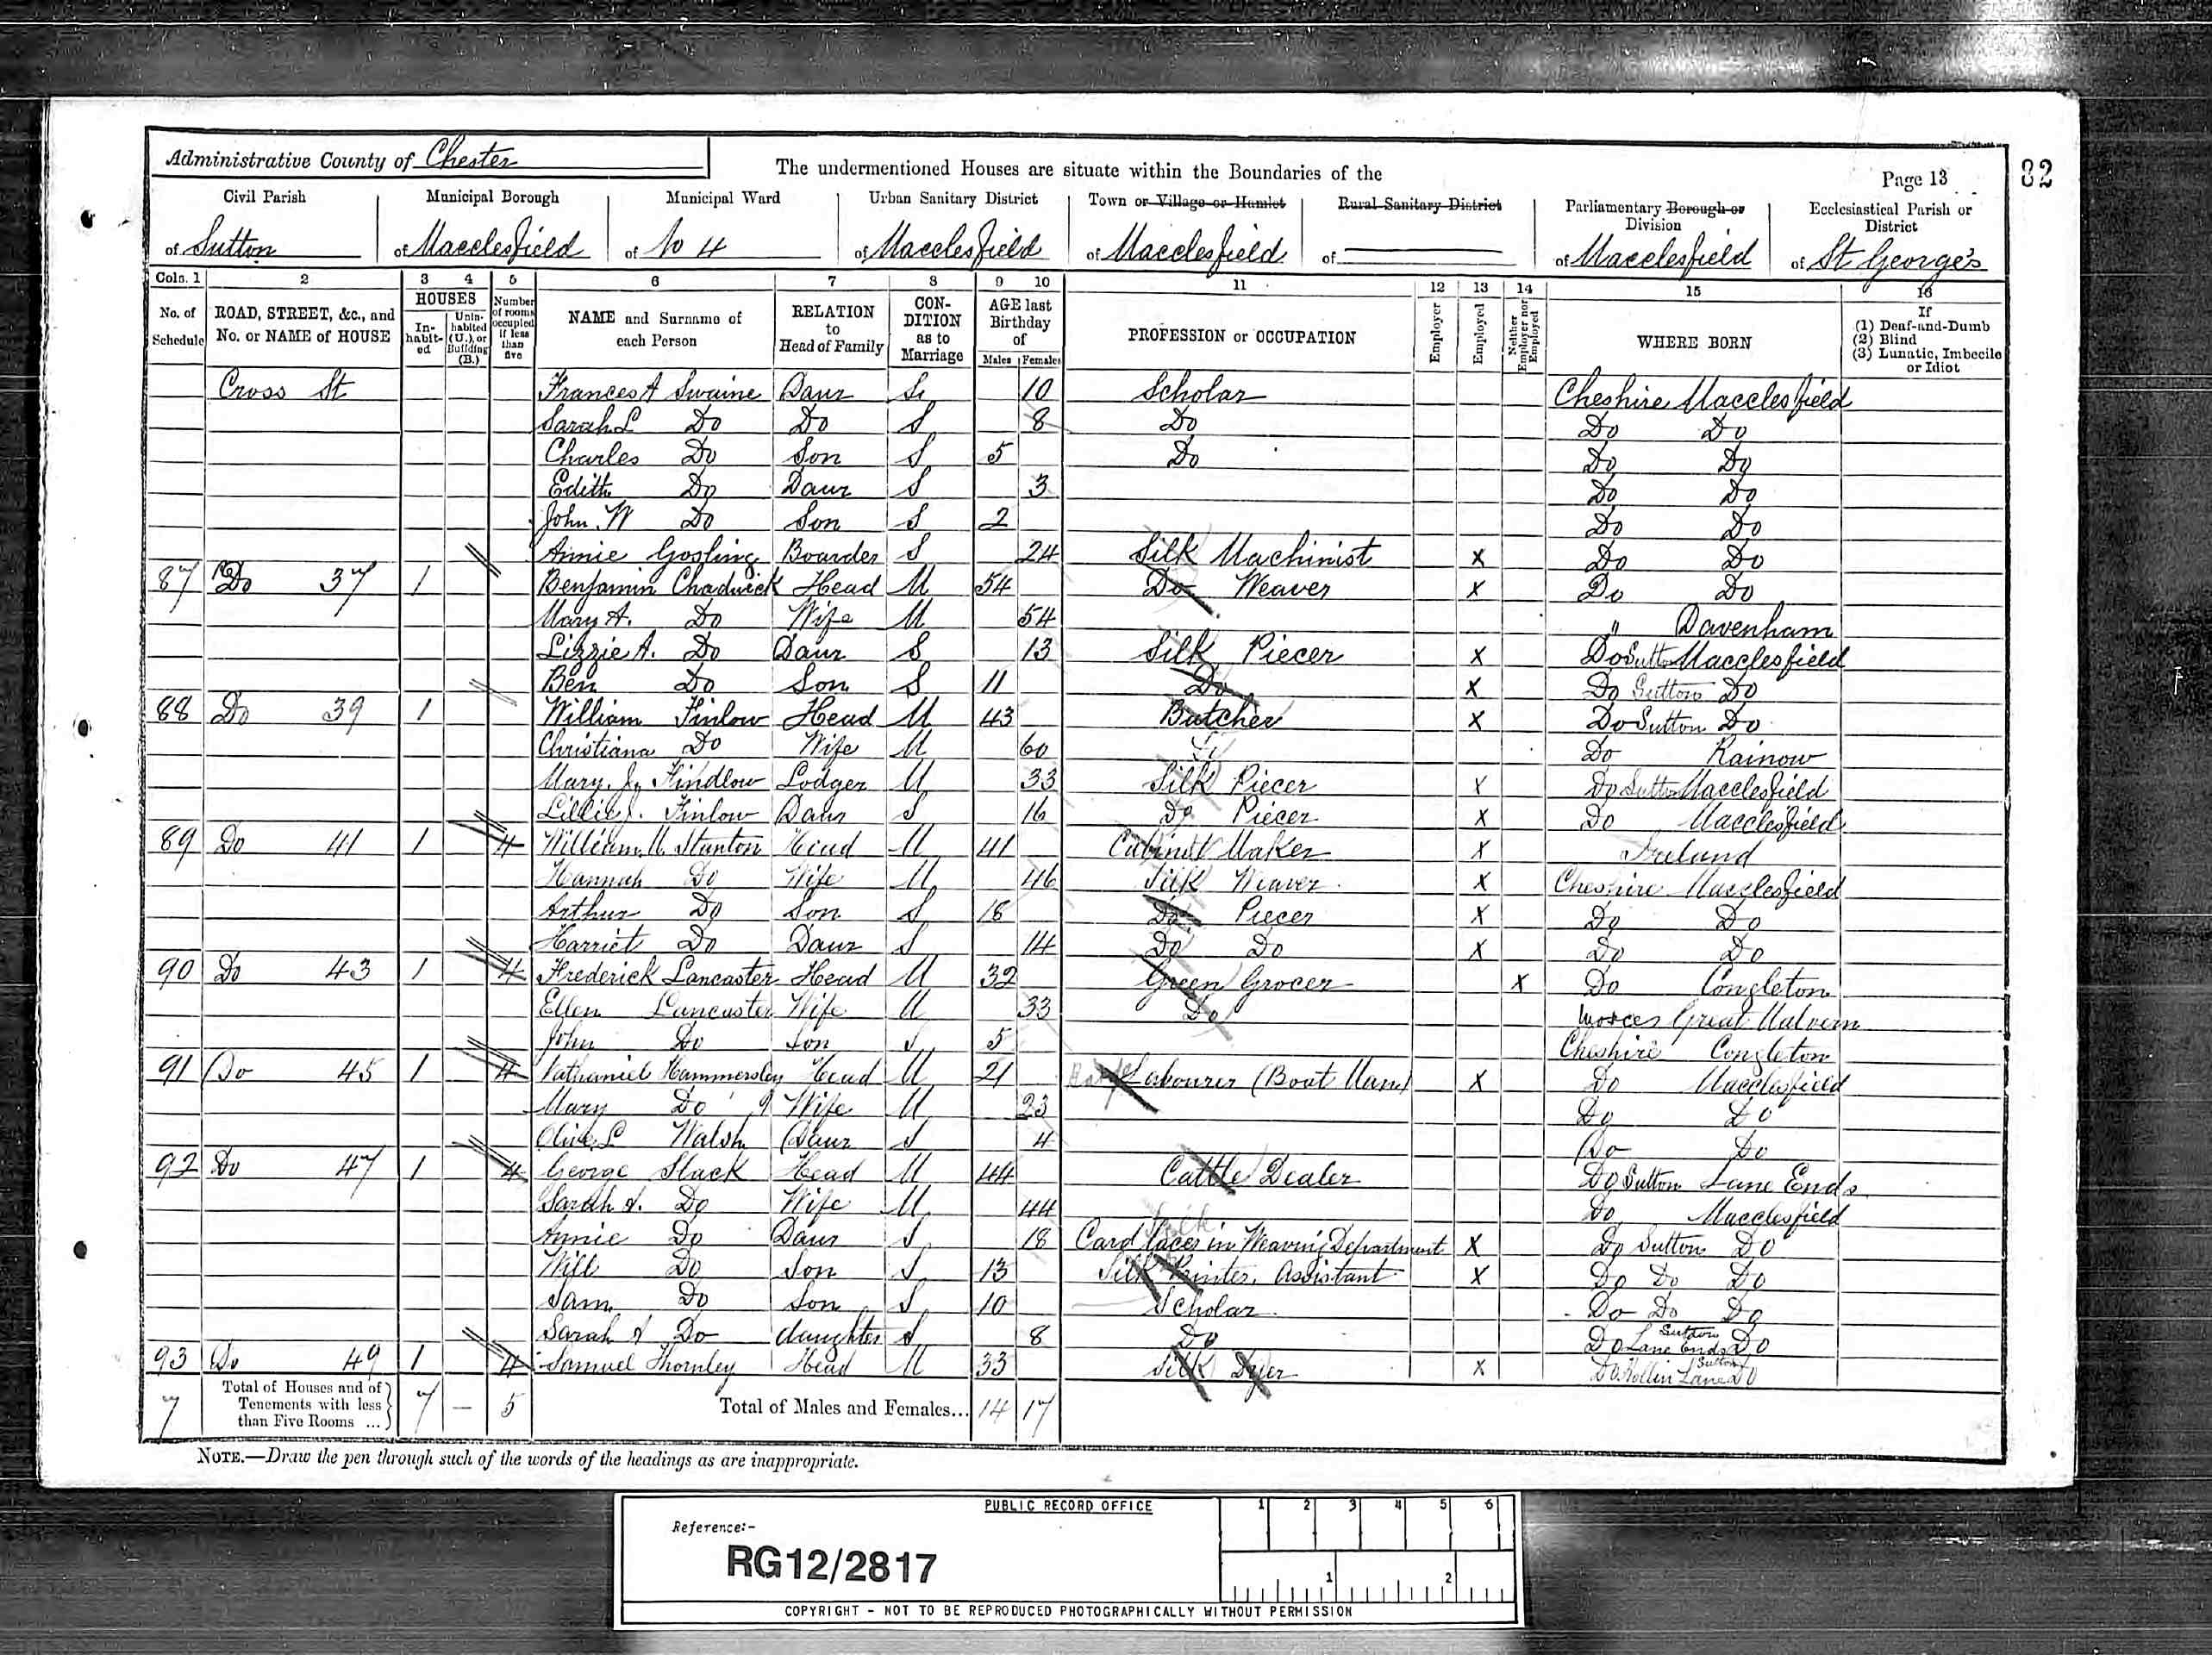 Administrative County of Chester
The undermentioned Houses are situate within the Boundaries of the
Page 13
82
Civil Parish Municipal Borough Municipal Ward Urban Sanitary District Town or Village or Hamlet Rural Sanitary District Parliamentary Borough or Division Ecclesiastical Parish or District
of Sutton of Macclesfield of No 4 of Macclesfield of Macclesfield of of Macclesfield of St George's
Cols. 1 2 3 4 5 6 7 8 9 10 11 12 13 14 15 16
No. of Schedule ROAD, STREET, &c., and No. or NAME of HOUSE HOUSES Inhabited Uninhabited (U.), or Building (B.) Number of rooms occupied if less than five NAME and Surname of each Person RELATION to Head of Family CONDITION as to Marriage AGE last Birthday of Males Females PROFESSION or OCCUPATION Employer Employed Neither Employer nor Employed WHERE BORN If (1) Deaf-and-Dumb (2) Blind (3) Lunatic, Imbecile or Idiot
Cross St Frances A Swaine Daur S 10 Scholar Cheshire Macclesfield
Sarah L Do Do S 8 Do Do Do
Charles Do Son S 5 Do Do Do
Edith Do Daur S 3 Do Do
John W Do Son S 2 Do Do
Annie Gosling Boarder S 24 Silk Machinist X Do Do
87 Do 37 1 Benjamin Chadwick Head M 54 Do Weaver X Do Do
Mary A. Do Wife M 54 " Davenham
Lizzie A. Do Daur S 13 Silk Piecer X Do Sutton Macclesfield
Ben Do Son S 11 Do X Do Sutton Do
88 Do 39 1 William Finlow Head M 43 Butcher X Do Sutton Do
Christiana Do Wife M 60 Do Rainow
Mary J. Findlow Lodger M 33 Silk Piecer X Do Sutton Macclesfield
Lillie J. Finlow Daur S 16 Do Piecer X Do Macclesfield
89 Do 41 1 4 William M. Stanton Head M 41 Cabinet Maker X Ireland
Hannah Do Wife M 46 Silk Weaver X Cheshire Macclesfield
Arthur Do Son S 18 Do Piecer X Do Do
Harriet Do Daur S 14 Do Do X Do Do
90 Do 43 1 4 Frederick Lancaster Head M 32 Green Grocer X Do Congleton
Ellen Lancaster Wife M 33 Do Worces Great Malvern
John Do Son S 5 Cheshire Congleton
91 Do 45 1 4 Nathaniel Hammersley Head M 21 Labourer (Boat Man) X Do Macclesfield
Mary Do Wife M 23 Do Do
Olive L Walsh Daur S 4 Do Do
92 Do 47 1 4 George Slack Head M 44 Cattle Dealer Do Sutton Lane Ends
Sarah A. Do Wife M 44 Do Macclesfield
Annie Do Daur S 18 Card lacer in Weaving Department X Do Sutton Do
Will Do Son S 13 Silk Printer, Assistant X Do Do Do
Sam Do Son S 10 Scholar Do Do Do
Sarah A Do daughter S 8 Do Do Lane Ends Sutton Do
93 Do 49 1 4 Samuel Thornley Head M 33 Silk Dyer X Do Hollin Lane Sutton Do
7 Total of Houses and of Tenements with less than Five Rooms ... 7 — 5 Total of Males and Females... 14 17
NOTE.—Draw the pen through such of the words of the headings as are inappropriate.
PUBLIC RECORD OFFICE
1 2 3 4 5 6
Reference:-
RG12/2817
1 2
COPYRIGHT - NOT TO BE REPRODUCED PHOTOGRAPHICALLY WITHOUT PERMISSION